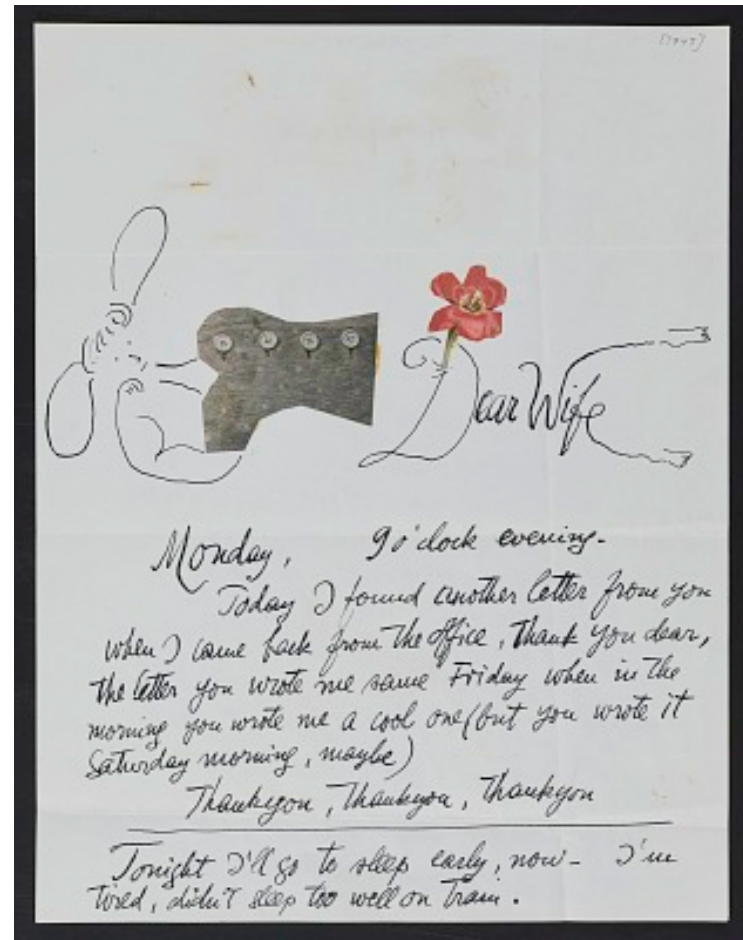 [1945]
Dear Wife
Monday, 9 o'clock evening.
Today I found another letter from you
when I came back from the office, thank you dear,
the letter you wrote me same Friday when in the
morning you wrote me a cool one (but you wrote it
Saturday morning, maybe)
Thankyou, Thankyou, Thankyou
Tonight I'll go to sleep early, now - I'm
tired, didn't sleep too well on train.